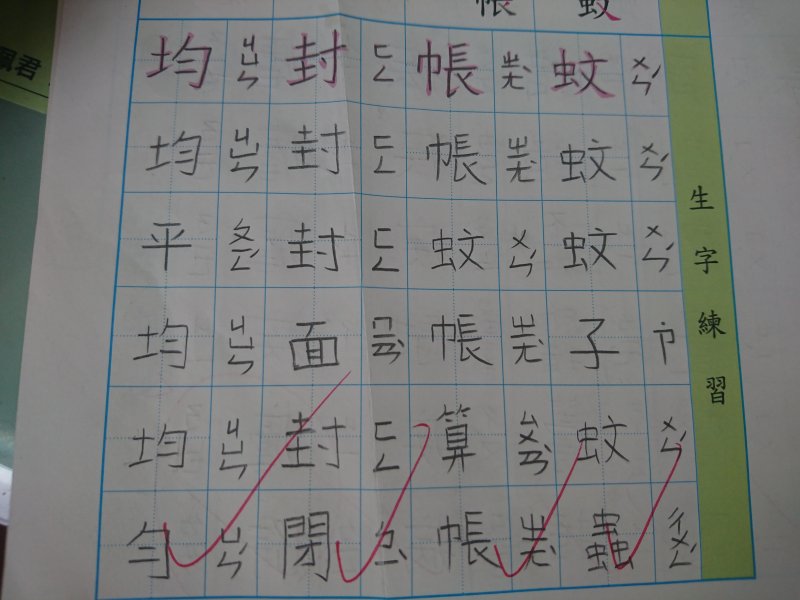 生字練習
蚊
蚊蚊蚊子蚊蟲
ㄨㄣˊ ㄨㄣˊ ㄨㄣˊ ˙ㄗ ㄨㄣˊ ㄔㄨㄥˊ
帳
帳帳蚊帳算帳
ㄓㄤˋ ㄓㄤˋ ㄨㄣˊ ㄓㄤˋ ㄙㄨㄢˋ ㄓㄤˋ
封封封面封閉
ㄈㄥ ㄈㄥ ㄈㄥ ㄇㄧㄢˋ ㄈㄥ ㄅㄧˋ
均均平均均勻
ㄐㄩㄣ ㄐㄩㄣ ㄆㄧㄥˊ ㄐㄩㄣ ㄐㄩㄣ ㄩㄣˊ